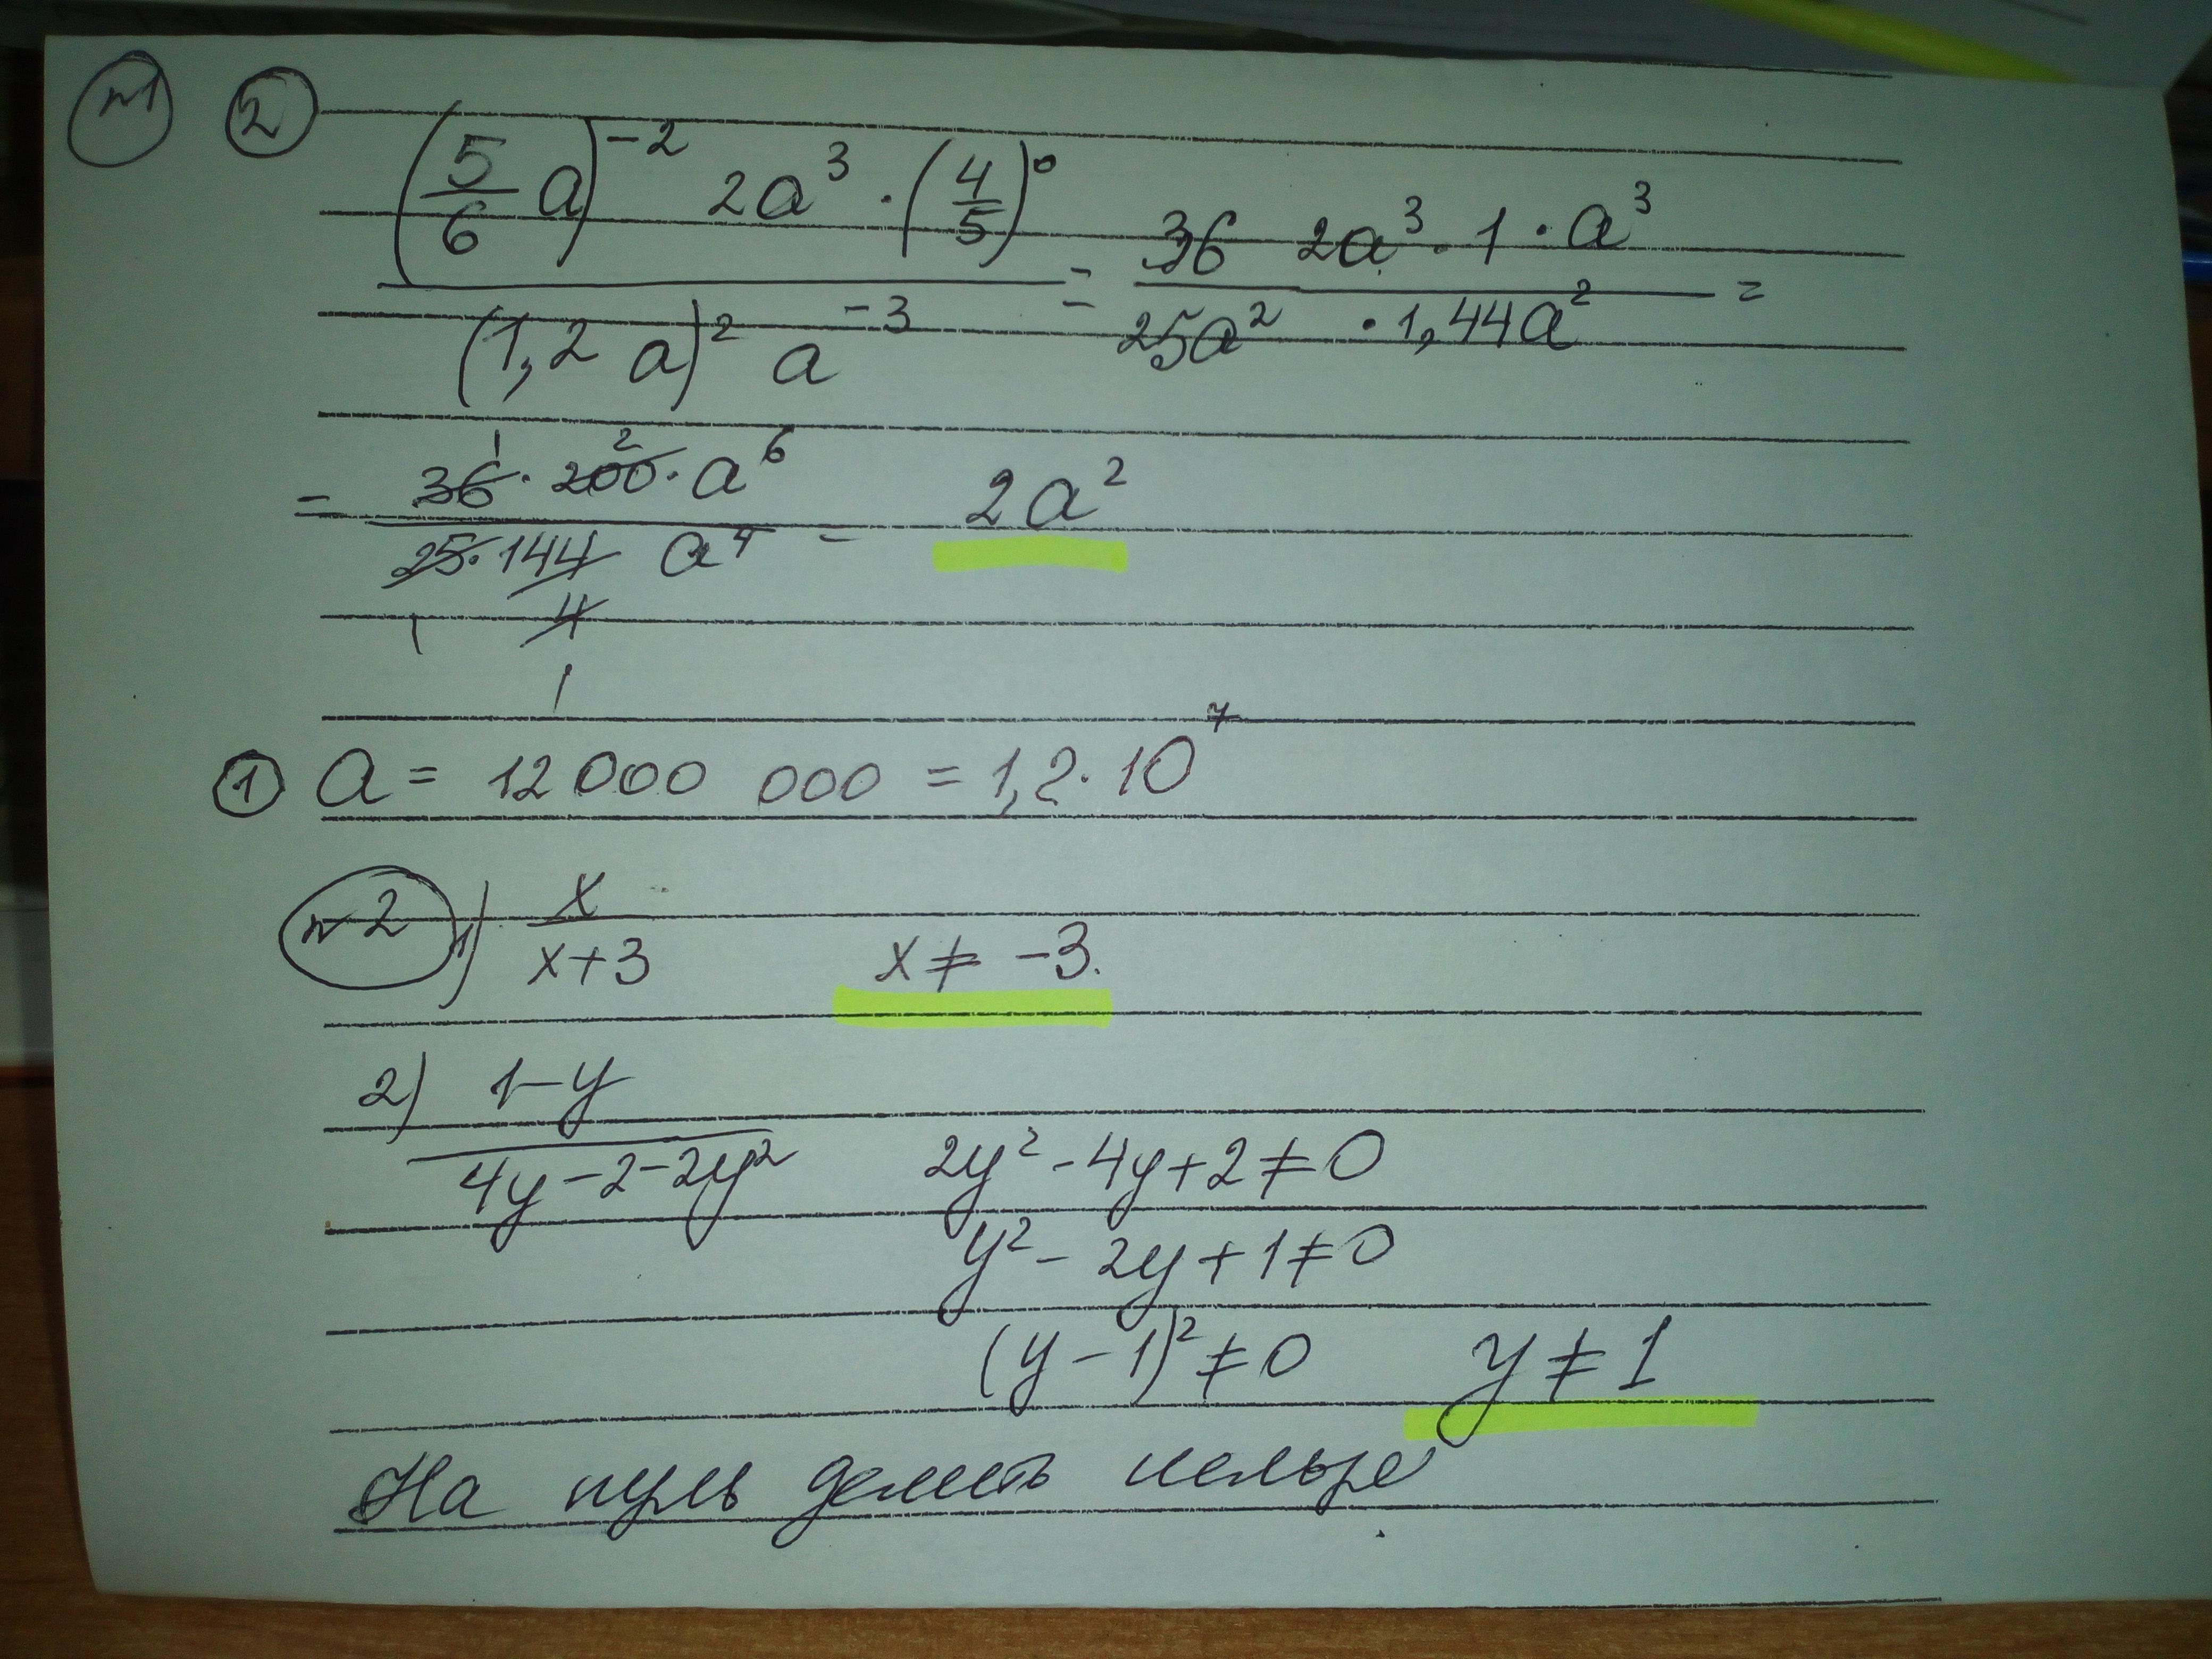 №1 2
(5/6 a)^-2 2a^3 · (4/5)^0 / (1,2 a)^2 a^-3 = 36 2a^3 · 1 · a^3 / 25a^2 · 1,44a^2 =
= 36 · 200 · a^6 / 25 · 144 a^4 = 2a^2
1 2
1 4
1
1 a = 12 000 000 = 1,2 · 10^7
№2 1) x / x+3 x ≠ -3.
2) 1-y / 4y-2-2y^2 2y^2 - 4y + 2 ≠ 0
y^2 - 2y + 1 ≠ 0
(y - 1)^2 ≠ 0 y ≠ 1
На нуль делить нельзя